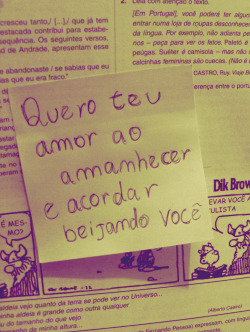 cresceu tanto./ [...]./ que já tem
estacada contribui para estabe-
equência. Os seguintes versos,
d de Andrade, apresentam esse
abandonaste / se sabias que eu
as que eu era fraco."
2. Leia com atenção o texto.
[Em Portugal], você poderá ter algun
entrar numa loja de roupas desconhecen
da língua. Por exemplo, não adianta pe
nos – peça para ver os fatos. Paletó é
peúgas. Suéter é camisola – mas não
calcinhas femininas são cuecas. (Não é
CASTRO, Ruy. Viaje B
erença entre o port
Quero teu
amor ao
amanhecer
e acordar
beijando você
É MES-
MO?
Dik Brow
EVAR VOCÊ A
aldeia vejo quanto da terra se pode ver no Universo...
ha aldeia é grande como outra qualquer
ou do tamanho do que vejo
o tamanho da minha altura...
(Alberto Caeiro)
Fernando Pessoa) expressam, com lingu